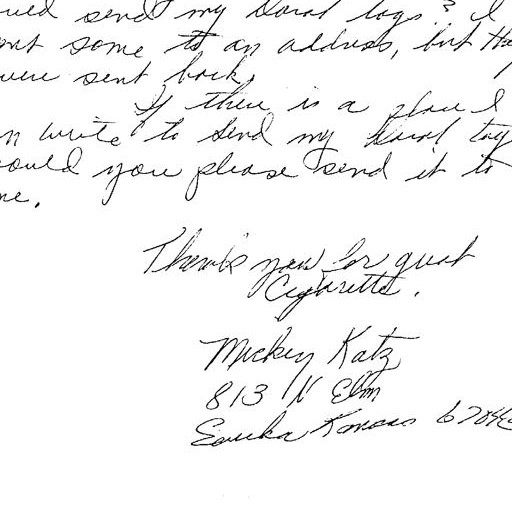 send my Doral tags? I
sent some to an address, but they
were sent back.
If there is a place I
can write to send my Doral tag
would you please send it to
me.
Thank you for great
Cigarette.
Mickey Katz
813 N Elm
Eureka Kansas 67045